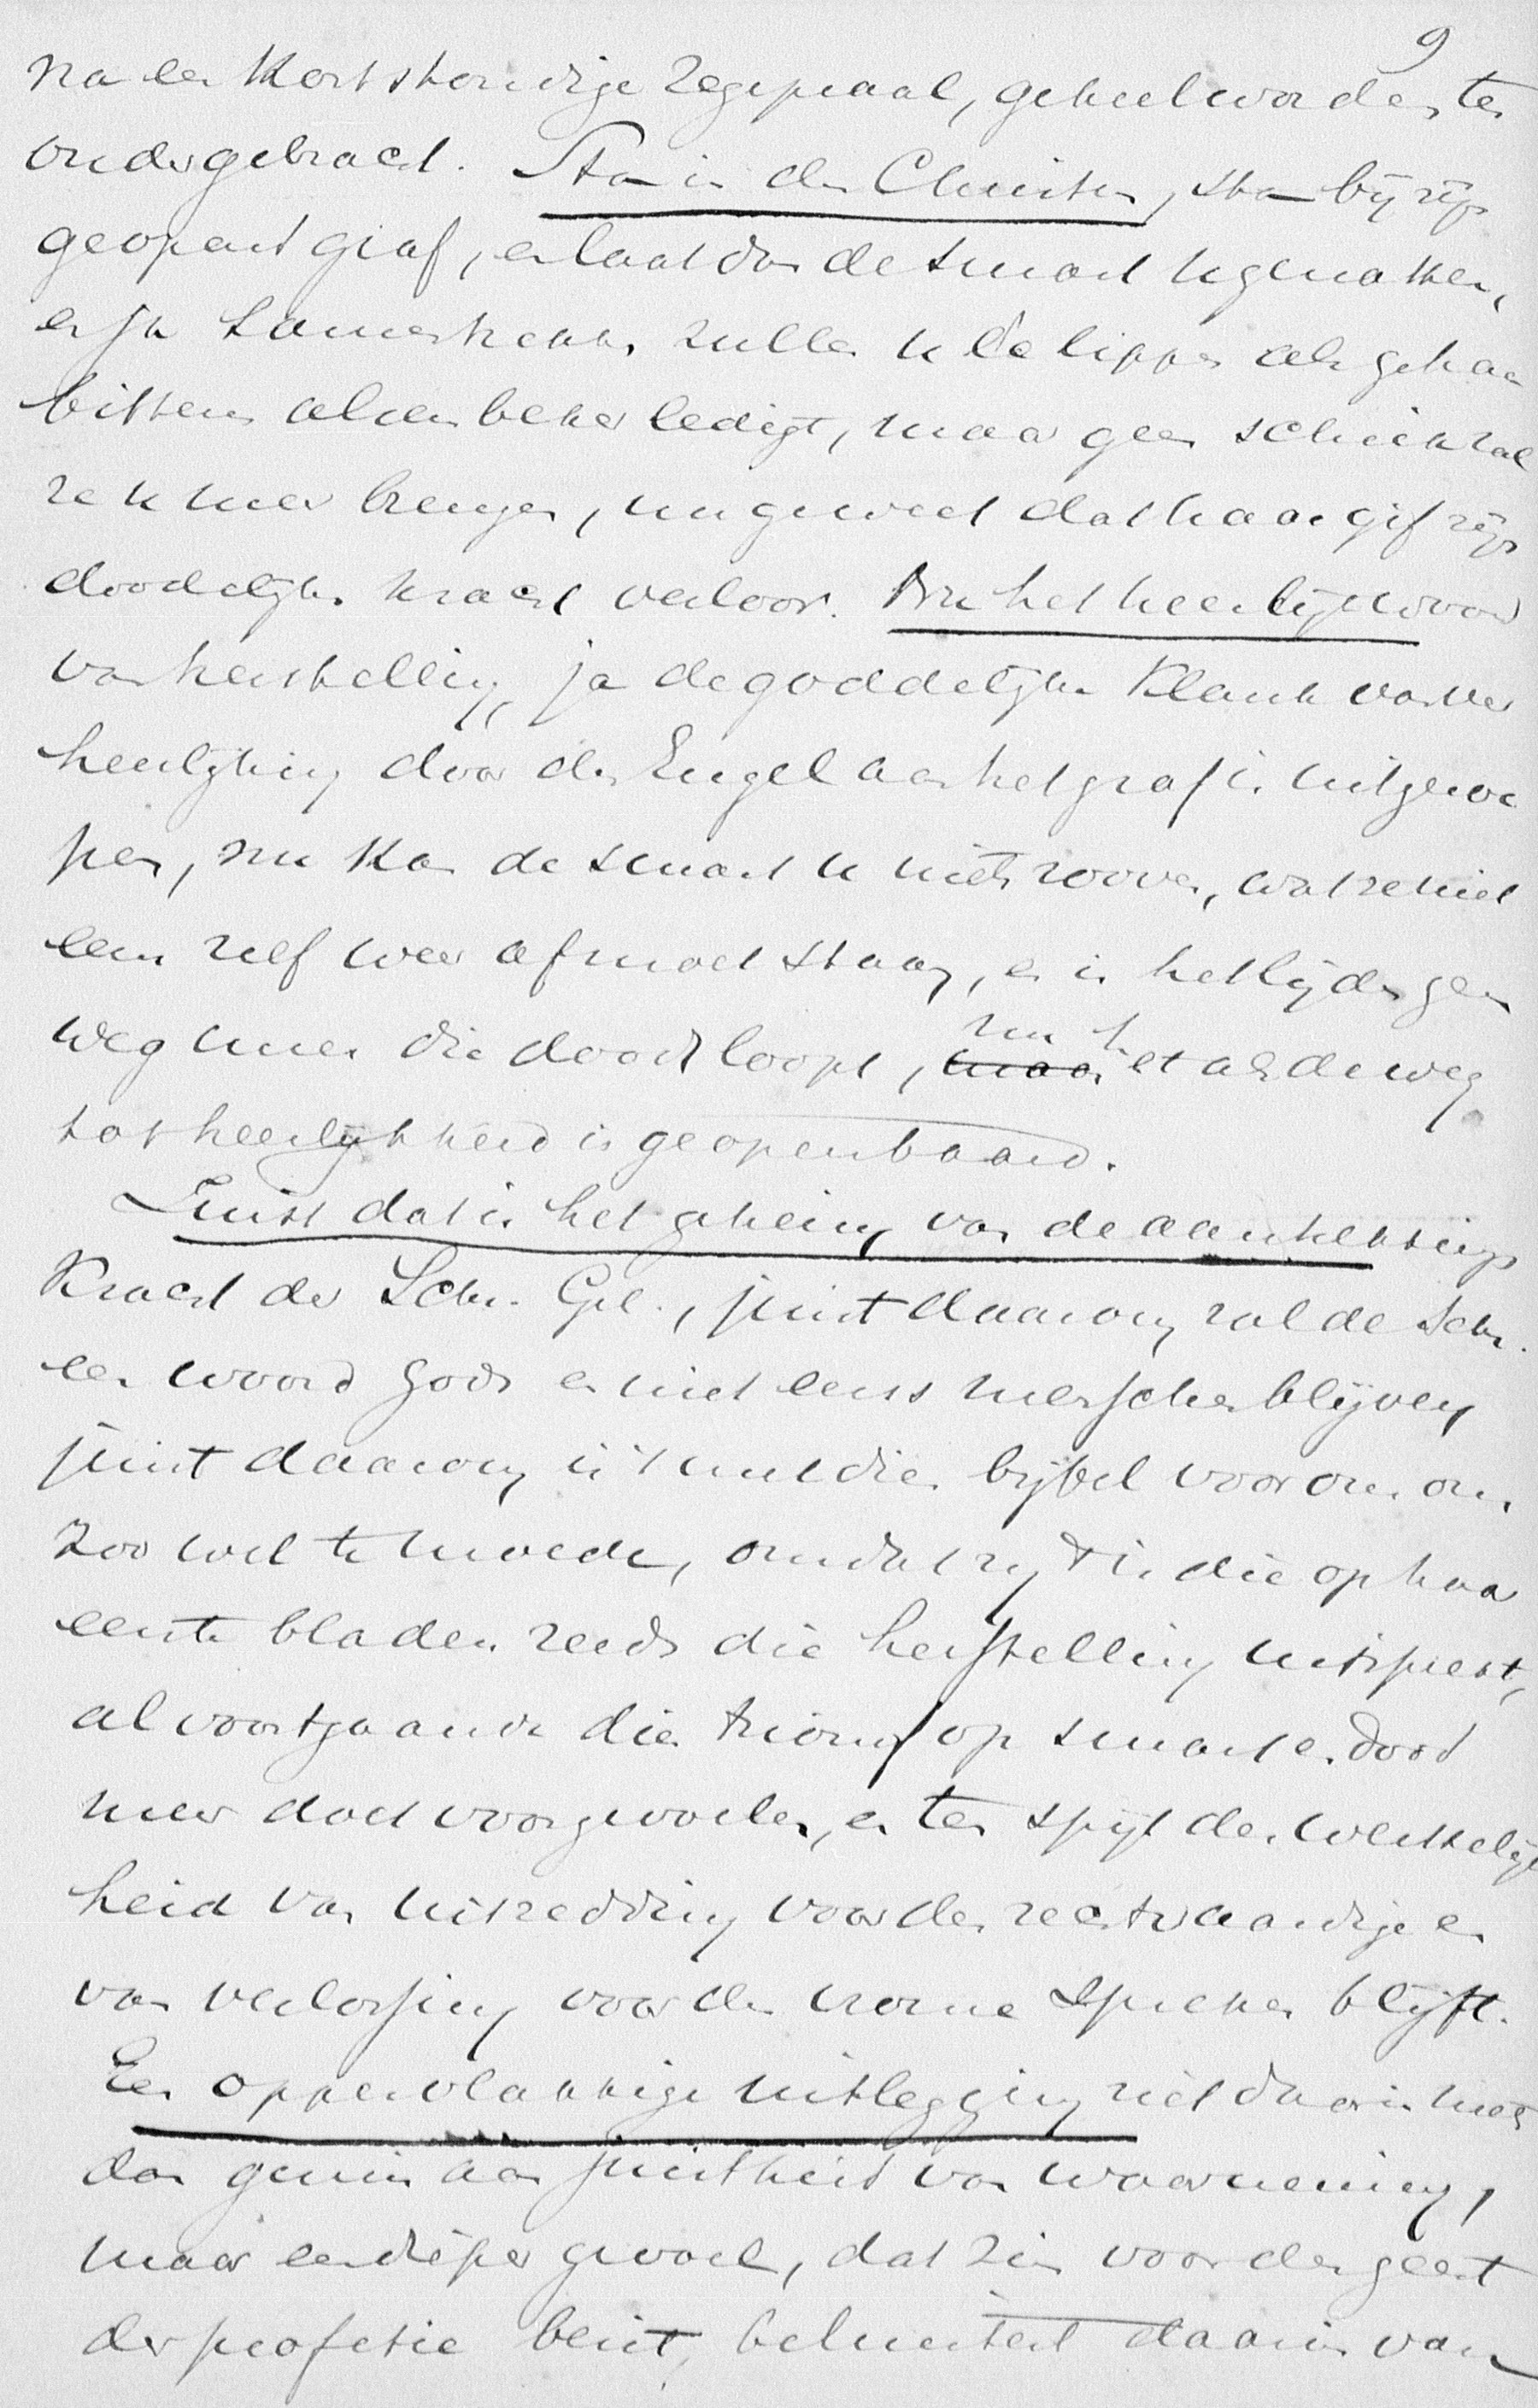 9
na een kortstondige zegepraal, geheel worden ten
ondergebracht. Sta in den Christen, sta bij zijn
geopend graf, en laat dan de smart u genaken,
en ja samentrekken zullen u de lippen als ge haar
bitteren alsembeker ledigt, maar geen schrik zal
ze u meer brengen, nu ge weet dat haar gif zijn
doodelijke kracht verloor. Nu het heerlijk woord
van herstelling, ja de goddelijke klank van ver
heerlijking door den Engel aan het graf is uitgeroe
pen, nu kan de smart u niets rooven, wat ze niet
eens zelf weer afmoet staan, en is het lijden geen
weg meer die dood loopt, nu het als de weg
tot heerlijkheid is geopenbaard.
Juist dat is het geheim van de aantrekkings
kracht der Schr. Gel., juist daarom zal de Schr.
een woord Gods en niet eens menschen blijven
juist daarom is 't met dien bijbel voor ons ons
zoo wel te moede, omdat zij 't is die op haar
eerste bladen reeds die herstelling uitspreekt,
al voortgaande die triomf op smart en dood
meer doet voorgevoelen, en ten spijt der werkelijk
heid van uitredding voor den rechtvaardige en
van verlossing voor den vrome spreken blijft.
Een oppervlakkige uitlegging ziet daarin niets
dan gemis aan juistheid van waarneming,
maar een dieper gevoel, dat zin voor den geest
der profetie bezit, beluistert daarin van